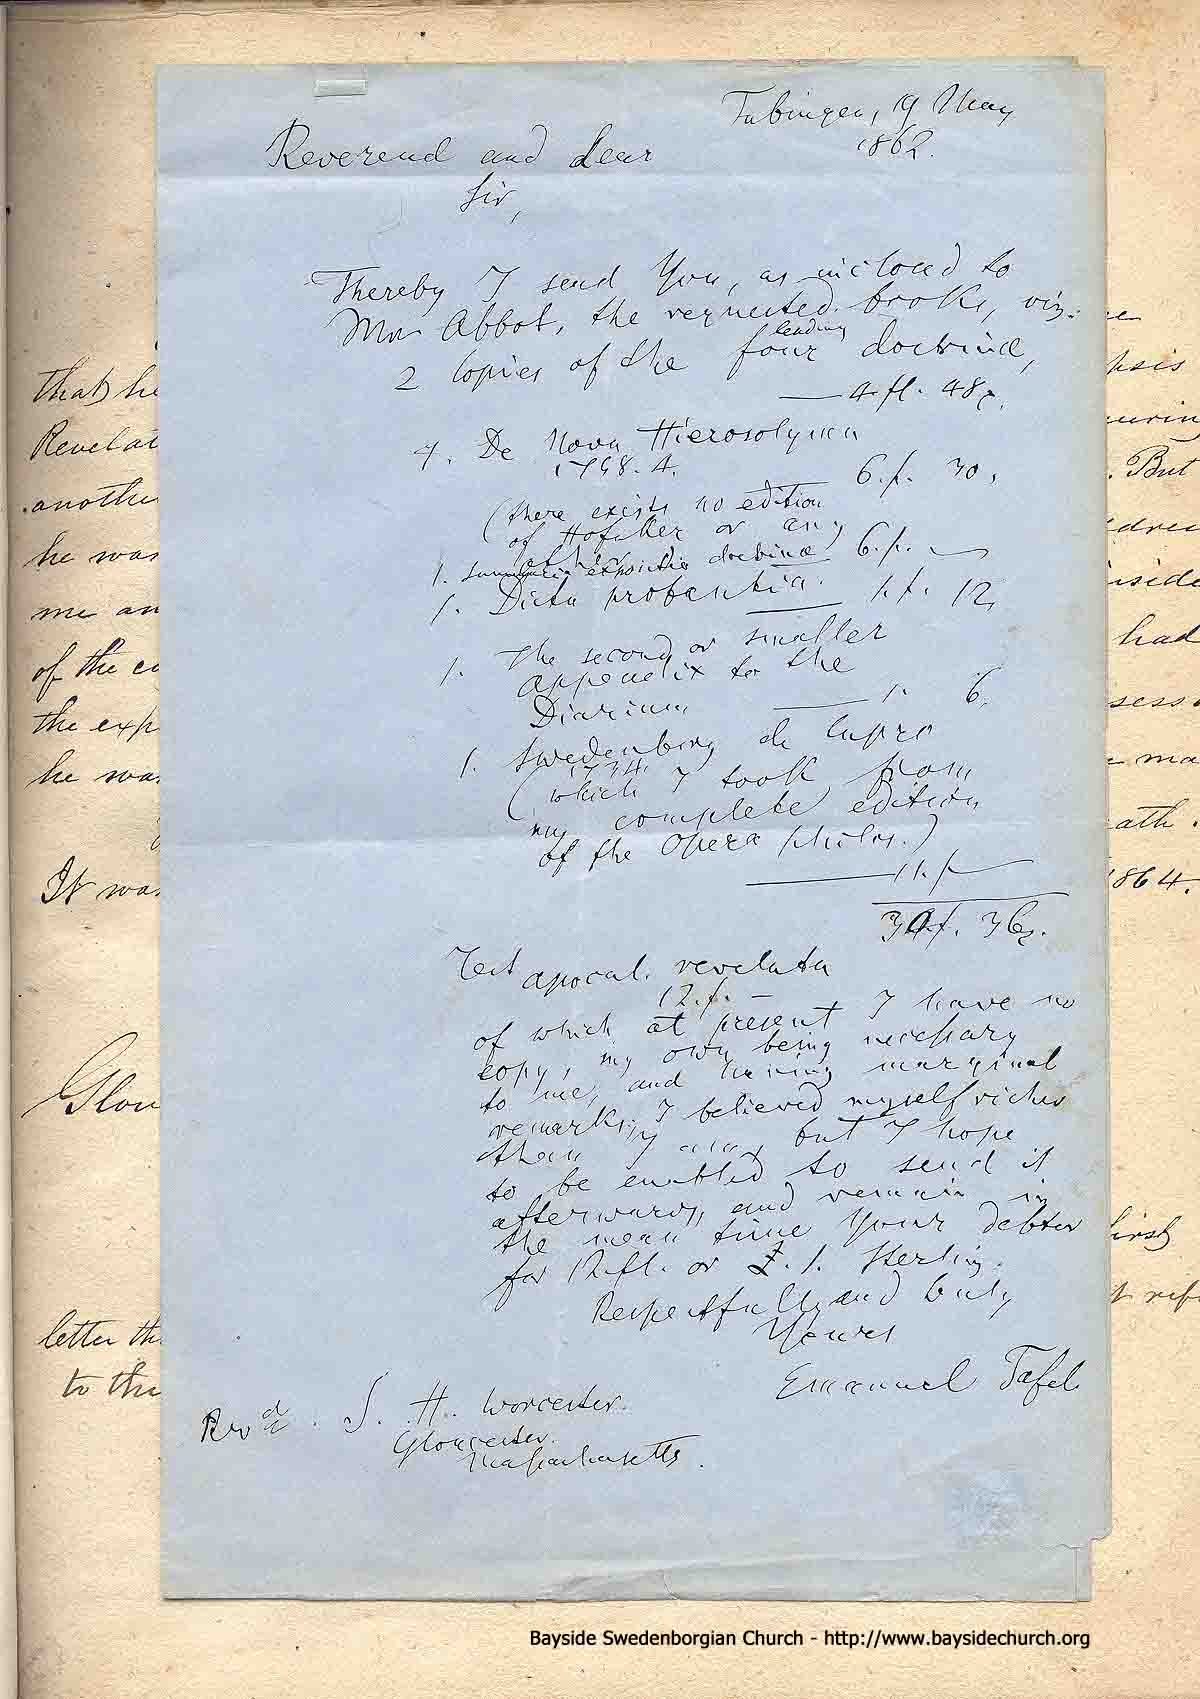 Tubingen, 19 May
1862.
Reverend and dear
Sir,
Thereby I send You, as inclosed to
Mr Abbot, the requested books, viz:
2 Copies of the four leading doctrinæ,
4 fl. 48
De Nova Hierosolyma
6. f. 30.
(there exists no edition
of Hofaker or any
other)
1. summaria expositio doctrinæ 6. f.
1. Dicta probantia. 1. f. 12
1. The second or smaller
appendix to the
Diarium 1. 6.
1. Swedenborg de Cupro
1734.
(which I took from
my complete edition
of the Opera philos.)
11. f
36
apocal. revelata
12. f. –
of which at present I have no
copy, my own being necessary
to me, and having marginal
remarks; I believed myself richer
than I was, but I hope
to be enabled to send it
afterwards, and remain in
the mean time Your debtor
for 12 fl. or £. 1. Sterling.
Respectfully and truly
Yours
Emanuel Tafel
Revd. S. H. Worcester.
Gloucester.
Massachusetts.
that he
Revelat
another
he was
me an
of the
the exp
he was
It was
Glou
letter th
to tha
But
had
ath.
1864.
first
Bayside Swedenborgian Church - http://www.baysidechurch.org